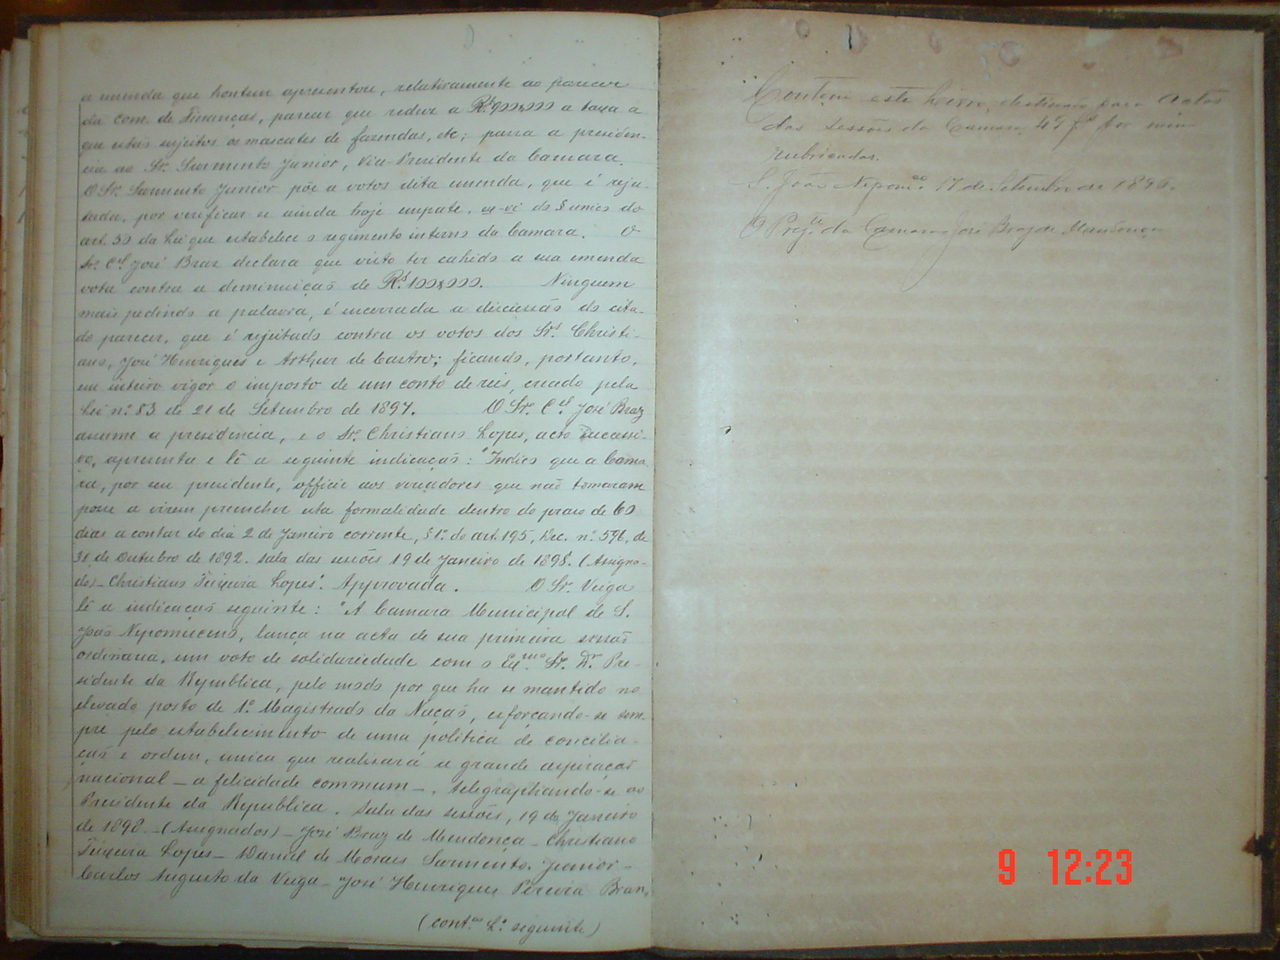 a emenda que hontem apresentou, relativamente ao parecer
da com. de Finanças, parecer que reduz a Rs. 900$000 a taxa a
que estão sujeitos os mascates de fazendas, etc; passa a presiden-
cia ao Sr. Sarmento Junior, Vice-Presidente da Camara.
O Sr. Sarmento Junior põe a votos dita emenda, que é regei-
tada, por verificar-se ainda hoje empate, ex-vi do § unico do
art. 30 da Lei que estabelece o regimento interno da Camara. O
Sr. Cel. José Braz declara que visto ter cahido a sua emenda
vota contra a deminuição de Rs. 100$000. Ninguem
mais pedindo a palavra, é encerrada a discussão do cita-
do parecer, que é rejeitado contra os votos dos Srs. Christi-
ano, José Henriques e Arthur de Castro; ficando, portanto,
em inteiro vigor o imposto de um conto de reis, creado pela
Lei nº 83 de 21 de Setembro de 1897. O Sr. Cel. José Braz
assume a presidencia, e o Sr. Christiano Lopes, acto successi-
vo, apresenta e lê a seguinte indicação: "Indico que a Cama-
ra, por seu presidente, officie aos vereadores que não tomaram
posse a virem preencher esta formalidade dentro do praso de 60
dias a contar do dia 2 de Janeiro corrente, § 1º do art. 195, Dec. nº 596, de
31 de Outubro de 1892. Sala das sessões 19 de Janeiro de 1898. (Assigna-
do)- Christiano Teixeira Lopes". Approvada. O Sr. Veiga
lê a indicação seguinte: "A Camara Municipal de S.
João Nepomuceno, lança na acta de sua primeira sessão
ordinaria, um voto de solidariedade com o Exmo. Sr. Dr. Pre-
sidente da Republica, pelo modo por que ha se mantido no
elevado posto de 1º Magistrado da Nação, esforçando-se sem-
pre pelo estabelecimento de uma politica de concilia-
ção e ordem, unica que realisará a grande aspiração
nacional - a felicidade commum -, telegraphando-se ao
Presidente da Republica. Sala das sessões, 19 de Janeiro
de 1898 - (Assignados) - José Braz de Mendonça - Christiano
Teixeira Lopes - Daniel de Moraes Sarmento Junior -
Carlos Augusto da Veiga - José Henriques Pereira Bran-
(contem Lo seguinte)
Contem este Livro, destinado para Actas
das sessões da Camara, por mim
rubricadas.
S. João Nepomno. 17 de Setembro de 1896.
O Prezte. da Camara José Braz de Mendonça
9 12:23